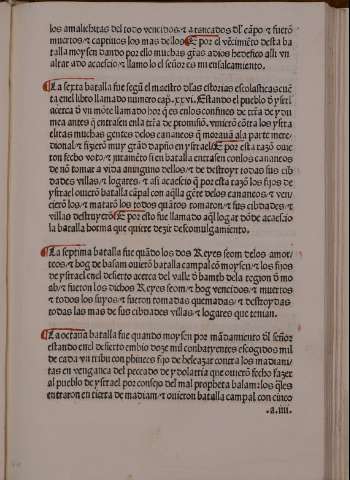 los amalichitas del todo vencidos ⁊ arrancados dl cāpo ⁊ fuerō
muertos ⁊ captiuos los mas dellos E por el vēcimiēto desta ba
talla moysen dando por ello muchas grās adios hedefico alli vn
altar ado acaescio ⁊ llamo lo el señor es mi ensalçamiento.
La sexta batalla fue segū el maestro dlas estorias escolasticas cuē
ta enel libro llamado numero cap. xxvi. Estando el pueblo d ysrl
acerca d vn mōte llamado hor q es enlos confines de trra de ydu
mea antes q entrasen enla trra de promisiō. vinierō cōtra los ysra
elitas muchas gentes delos cananeos q morauā ala parte mere
dional ⁊ fizierō muy grād dapño en ysrael E por esta razō ouie
ron fecho voto ⁊ iuramēto si en batalla entrasen conlos cananeos
de nō tomar a vida aninguno dellos ⁊ de destroyr todas sus cib
dades villas ⁊ logares. ⁊ asi acaescio q por esta razō los fijos de
ysrael ouierō batalla cāpal con aqlla gēte delos cananeos ⁊ ven
cierō los ⁊ mataron los todos quātos tomaron ⁊ sus cibdades ⁊
villas destruyerō E por esto fue llamado aql logar dōde acaescio
la batalla horma que quiere dezir descomulgamiento.
La septima batalla fue quādo los dos Reyes seom delos amor
reos ⁊ hog de basam ouierō batalla campal cō moysen ⁊ los fijos
de ysrael en el desierto acerca del valle d bamth dela region d mo
ab ⁊ fueron los dichos Reyes seom ⁊ hog vencidos ⁊ muertos
⁊ todos los suyos ⁊ fueron tomadas quemadas ⁊ destroydas
todas las mas de sus cibdades villas ⁊ logares que tenian.
La octaua batalla fue quando moysen por mādamiento dl señor
estando en el desierto embio doze mil conbatyentes escogidos mil
de cada vn tribu con phinees fijo de heleazar contra los madiani
tas en vengança del peccado de ydolatria que ouierō fecho fazer
al pueblo de ysrael por consejo del mal propheta balam: los qles
entraron en tierra de madiam ⁊ ouieron batalla campal con cinco
.a.iiii.